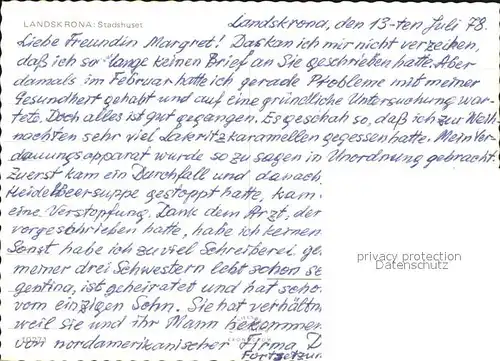 LANDSKRONA: Stadshuset
Landskrona, den 13-ten Juli 78.
Liebe Freundin Margret! Das kan ich mir nicht verzeihen,
daß ich so lange keinen Brief an Sie geschrieben hatte. Aber
damals im Februar hatte ich gerade Probleme mit meiner
Gesundheit gehabt und auf eine gründliche Untersuchung war-
tete. Doch alles ist gut gegangen. Es geschah so, daß ich zur Weih-
nachten sehr viel Lakritzkaramellen gegessen hatte. Mein Ver-
dauungsapparat wurde so zu sagen in Unordnung gebracht.
Zuerst kam ein Durchfall und danach,
Heidelbeersuppe gestoppt hatte, kam
eine Verstopfung. Dank dem Arzt, der
vorgeschrieben hatte, habe ich keinen
Sonst habe ich zu viel Schreiberei ge
meiner drei Schwestern lebt schon se
gentina, ist geheiratet und hat scho
vom einzigen Sohn. Sie hat verhältn
weil sie und ihr Mann bekommen
von nordamerikanischer Firma
Fortsetzun
privacy protection
Datenschutz